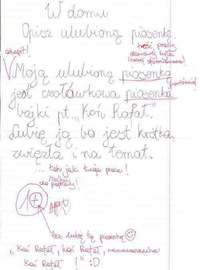 W domu
Opisz ulubioną piosenkę.
Moją ulubioną piosenką
jest czołówkowa piosenka
bajki pt. „Koń Rafał".
Lubię ją bo jest krótka,
zwięzła i na temat.
... tak jak twoja praca!
1+
Też lubię tę piosenkę
„Koń Rafał, koń Rafał,
Koń Rafał !" :D